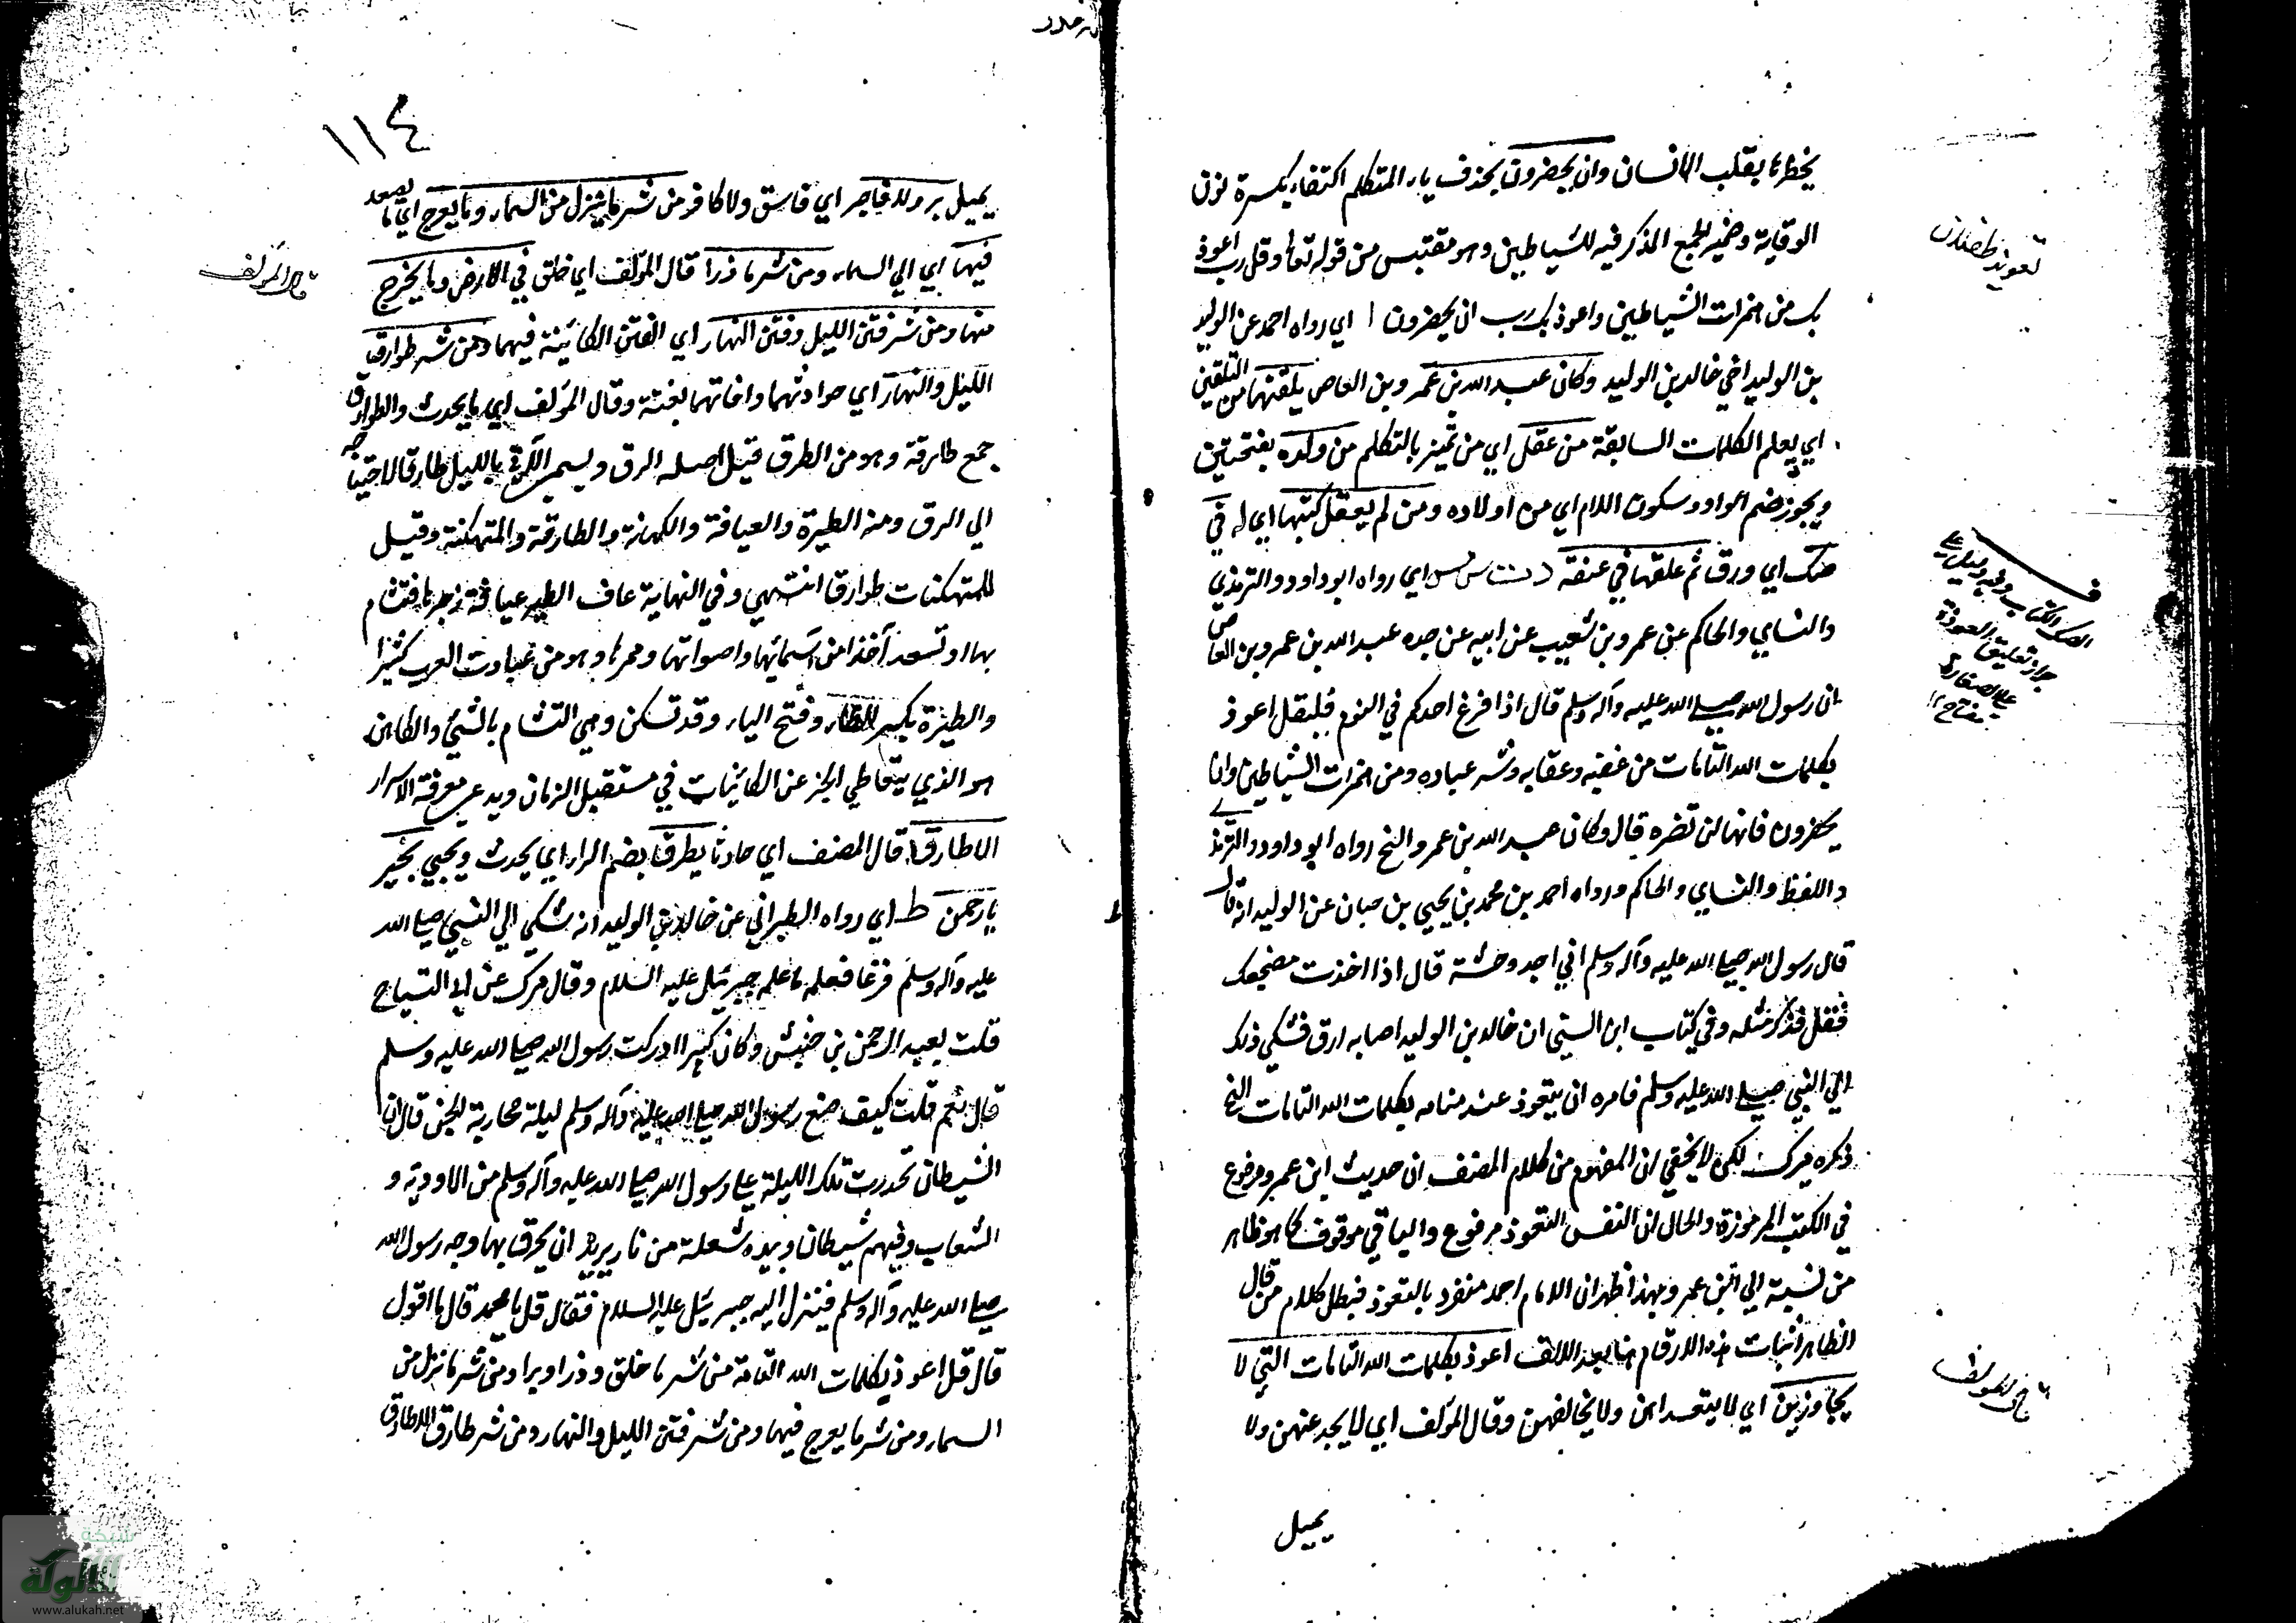 يخطر بها بقلب الانسان وان يحضرون بحذف ياء المتكلم اكتفاء بكسرة نون
الوقاية وضمير الجمع المذكر فيه للشياطين وهو مقتبس من قوله تعالى وقل رب اعوذ
بك من همزات الشياطين واعوذ بك رب ان يحضرون ا اي رواه احمد عن الوليد
بن الوليد اخي خالد بن الوليد وكان عبد الله بن عمرو بن العاص يلقنها من التلقين
اي يعلم الكلمات السابقة من عقل اي من تميز بالتكلم من ولده بفتحتين
ويجوز ضم الواو وسكون اللام اي من اولاده ومن لم يعقل كتبها اي له في
صك اي ورق ثم علقها في عنقه د ت س مس اي رواه ابو داود والترمذي
والنسايي والحاكم عن عمرو بن شعيب عن ابيه عن جده عبد الله بن عمرو بن العاص
ان رسول الله صلى الله عليه وآله وسلم قال اذا فزع احدكم في النوم فليقل اعوذ
بكلمات الله التامات من غضبه وعقابه وشر عباده ومن همزات الشياطين وان
يحضرون فانها لن تضره قال وكان عبد الله بن عمرو الخ رواه ابو داود والترمذي
واللفظ والنسايي والحاكم ورواه احمد بن محمد بن يحيى بن حبان عن الوليد انه قال
قال رسول الله صلى الله عليه وآله وسلم اني اجد وحشة قال اذا اخذت مضجعك
فقل فذكر مثله وفي كتاب ابن السني ان خالد بن الوليد اصابه ارق فشكى ذلك
الي النبي صلى الله عليه وسلم فامره ان يتعوذ عند منامه بكلمات الله التامات الخ
ذكره ميرك لكن لا يخفي ان المفهوم من كلام المصنف ان حديث ابن عمرو مرفوع
في الكتب المرموزة والحال ان النفس التعوذ مرفوع والباقي موقوف كما هو ظاهر
من نسبة الي ابن عمر وبهذا ظهر ان الامام احمد منفرد بالتعوذ فبطل كلام من قال
الظاهر اثبات هذه الارقام هنا بعد الالف اعوذ بكلمات الله التامات التي لا
يجاوزهن اي لا يتعداهن ولا يخالفهن وقال المؤلف اي لا يحيد عنهن ولا
يميل
تعويذ طفلان
الصك الكتاب
تعليق العوذة
على الصغار
مفتاح ١٢
قال المؤلف
١١٤
يميل بر ولا فاجر اي فاسق ولا كافر من شر ما ينزل من السماء وما يعرج اي ما يصعد
فيها اي الي السماء ومن شر ما ذرا قال المؤلف اي خلق في الارض وما يخرج
منها ومن شر فتن الليل وفتن النهار اي الفتن الكائنة فيهما ومن شر طوارق
الليل والنهار اي حوادثهما وآفاتهما بغتة وقال المؤلف اي ما يحدث والطوارق
جمع طارقة وهو من الطرق قيل اصله الدق ويسمى الآتي بالليل طارقا لاحتياجه
الي الدق ومنه الطيرة والعيافة والكهانة والطارقة والمتكهنة وقيل
للمتكهنات طوارق انتهى وفي النهاية عاف الطير عيافة زجرها فتشام
بها او تسعد آخذا من اسمائها واصواتها وممرها وهو من عادت العرب كثيرا
والطيرة بكسر الطاء وفتح الياء وقد تسكن وهي التشام بالشيء والكاهن
هو الذي يتعاطي الخبر عن الكائنات في مستقبل الزمان ويدعي معرفة الاسرار
الا طارقا قال المصنف اي حادثا يطرق بضم الراء اي يحدث ويجيي بخير
يا رحمن ط اي رواه الطبراني عن خالد بن الوليد انه شكي الي النبي صلى الله
عليه وآله وسلم فزعا فعلمه ما علمه جبرئيل عليه السلام وقال ميرك عن ابي التياح
قلت لعبد الرحمن بن خنبش وكان كبيرا ادركت رسول الله صلى الله عليه وسلم
قال نعم قلت كيف صنع رسول الله صلى الله عليه وآله وسلم ليلة محاربة الجن قال ان
الشيطان تحدرت تلك الليلة على رسول الله صلى الله عليه وآله وسلم من الاودية و
الشعاب وفيهم شيطان وبيده شعلة من نار يريد ان يحرق بها وجه رسول الله
صلى الله عليه وآله وسلم فينزل اليه جبرئيل عليه السلام فقال قل يا محمد قال ما اقول
قال قل اعوذ بكلمات الله التامة من شر ما خلق وذرا وبرا ومن شر ما ينزل من
السماء ومن شر ما يعرج فيها ومن شر فتن الليل والنهار ومن شر طارق الا طارق
قال المؤلف
شبكة
الألوكة
www.alukah.net